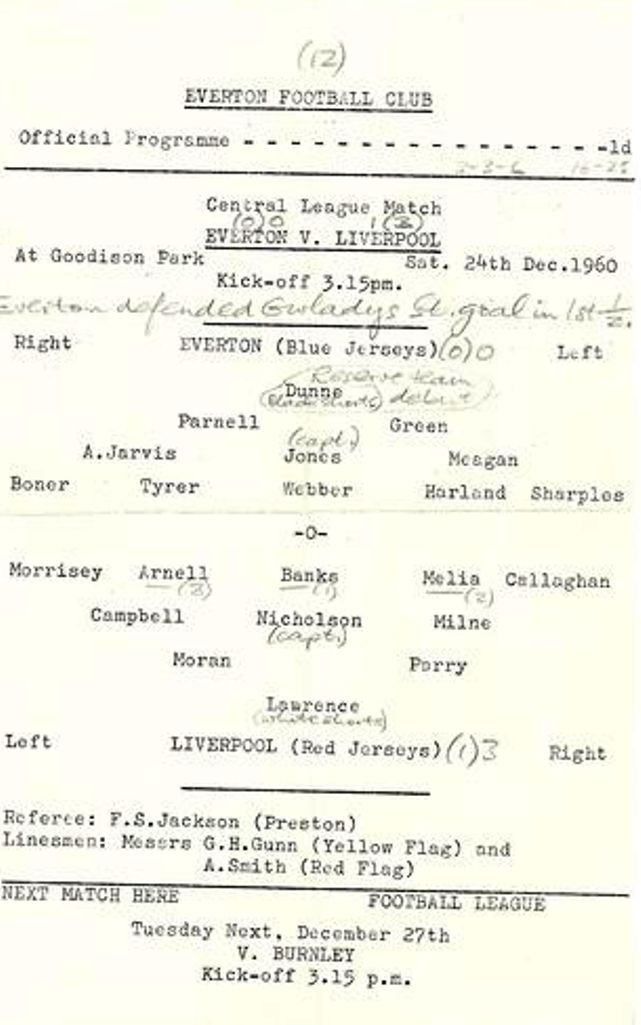 (12)
EVERTON FOOTBALL CLUB
Official Programme - - - - - - - - - - - - - - - - -1d
Central League Match
(0) 0 1 (3)
EVERTON V. LIVERPOOL
At Goodison Park Sat. 24th Dec.1960
Kick-off 3.15pm.
Everton defended Gwladys St. goal in 1st ½.
Right EVERTON (Blue Jerseys) (0) 0 Left
(Reserve team
Dunne
debut)
Parnell Green
(capt)
A.Jarvis Jones Meagan
Boner Tyrer Webber Harland Sharples
-O-
Morrisey Arnell Banks Melia Callaghan
(3) (1) (2)
Campbell Nicholson Milne
(capt)
Moran Parry
Lawrence
(white shorts)
Left LIVERPOOL (Red Jerseys) (1) 3 Right
Referee: F.S.Jackson (Preston)
Linesmen: Messrs G.H.Gunn (Yellow Flag) and
A.Smith (Red Flag)
NEXT MATCH HERE FOOTBALL LEAGUE
Tuesday Next, December 27th
V. BURNLEY
Kick-off 3.15 p.m.